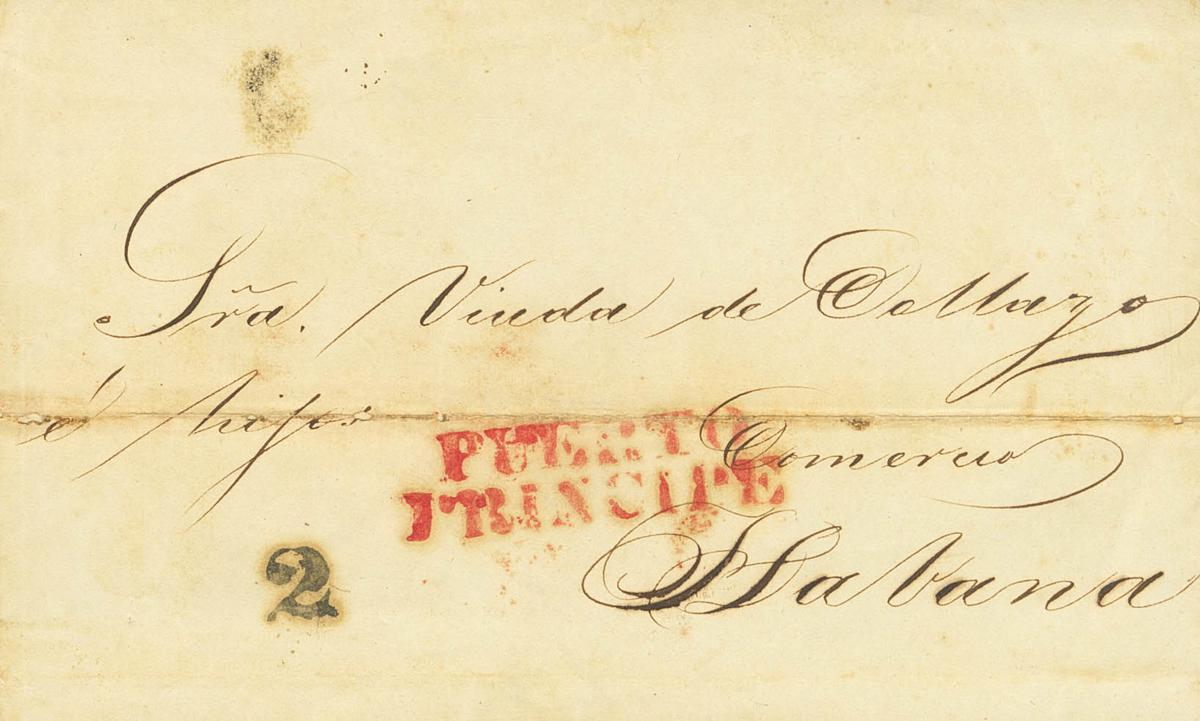 Sra. Viuda de Collazo
é hijos
PUERTO
PRINCIPE
Comercio
2
Habana